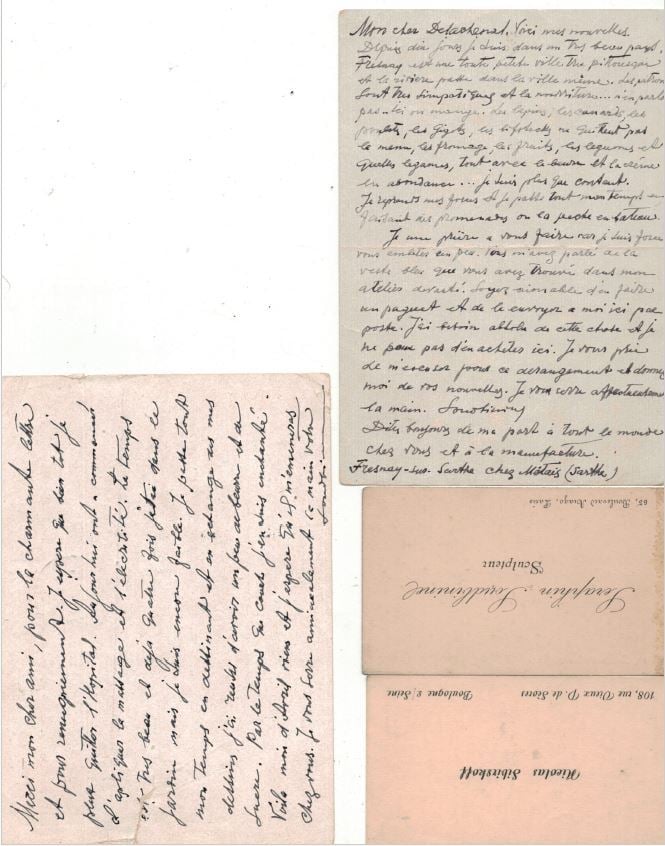 Mon cher Delachenal. Voici mes nouvelles.
Depuis dix jours je suis dans un tres beau pays.
Fresnay est une toute petite ville tres pitoresque
et la rivière passe dans la ville même. Les patrons
sont tres simpatiques et la nourriture.... n'en parle
pas.. ici on mange. Les lapins, les canards, les
poulets, les gigots, les bifstecks ne quittent pas
le menu, les fromage, les fruits, les legumes et
quelles legumes, tout avec le beurre et la crème
en abondance... je suis plus que contant.
Je reprends mes forces et je passe tout mon temps en
faisant des promenades ou la peche en bateau.
Je une prière a vous faire car je suis force
vous embetes un peu. Vous m'avez parlé de la
veste bleu que vous avez trouvée dans mon
atelier devasté. Soyez aimable d'en faire
un paquet et de le envoyer a moi ici par
poste. J'ai besoin absolu de cette chose et je
ne peux pas d'en achetes ici. Je vous prie
de m'excuser pour ce derangement et donnez
moi de vos nouvelles. Je vous serre affectueusement
la main. Soudbinine
Dites bonjour de ma part à tout le monde
chez vous et à la manufacture.
Fresnay-sur-Sarthe chez Métais (Sarthe)
Merci mon cher ami, pour la charmante lettre
et pour renseignement. J'espere que bien tot je
peux quitter l'hopital. Aujourd'hui ont a commencé
d'apliquer le massage et l'electrité. Le temps
est tres beau et deja quatre fois j'étais dans le
jardin mais je suis encore faible. Je passe tout
mon temps en dessinant et en echange de mes
dessins j'ai reussi d'avoir un peu de beurre et de
sucre. Par le temps qui court j'en suis enchanté.
Voila moi d'Avril viens et j'espere que je
chez vous. Je vous serre amicalement la main votre
Soudbinine
Seraphin Soudbinine
Sculpteur
65, Boulevard Arago, Paris
Nicolas Sibirskoff
108, rue Vieux P. de Sèvres
Boulogne s/Seine